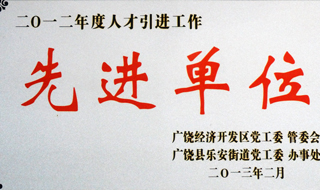 二〇一二年度人才引进工作
先进单位
广饶经济开发区党工委 管委会
广饶县乐安街道党工委 办事处
二〇一三年二月